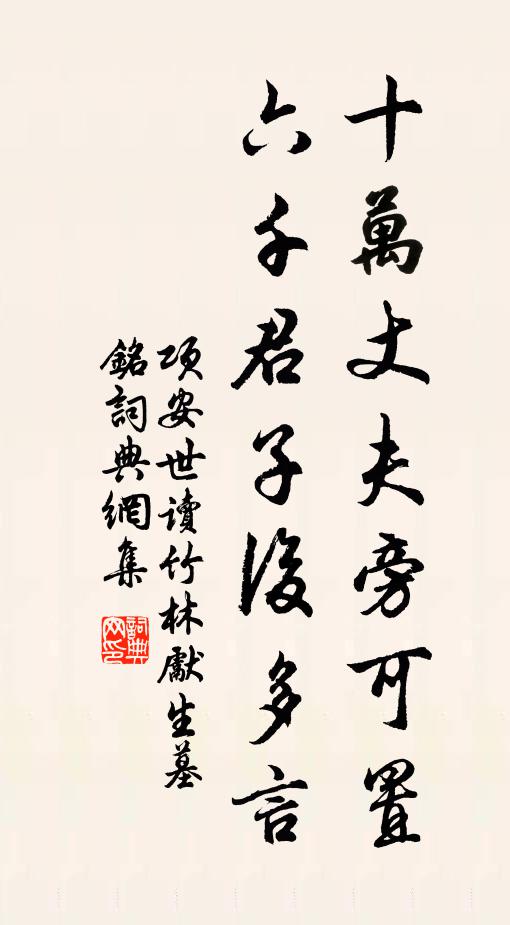 十萬丈夫旁可置
六千君子後多言
項安世讀竹林獻生墓
銘詞典網集
詞典网印